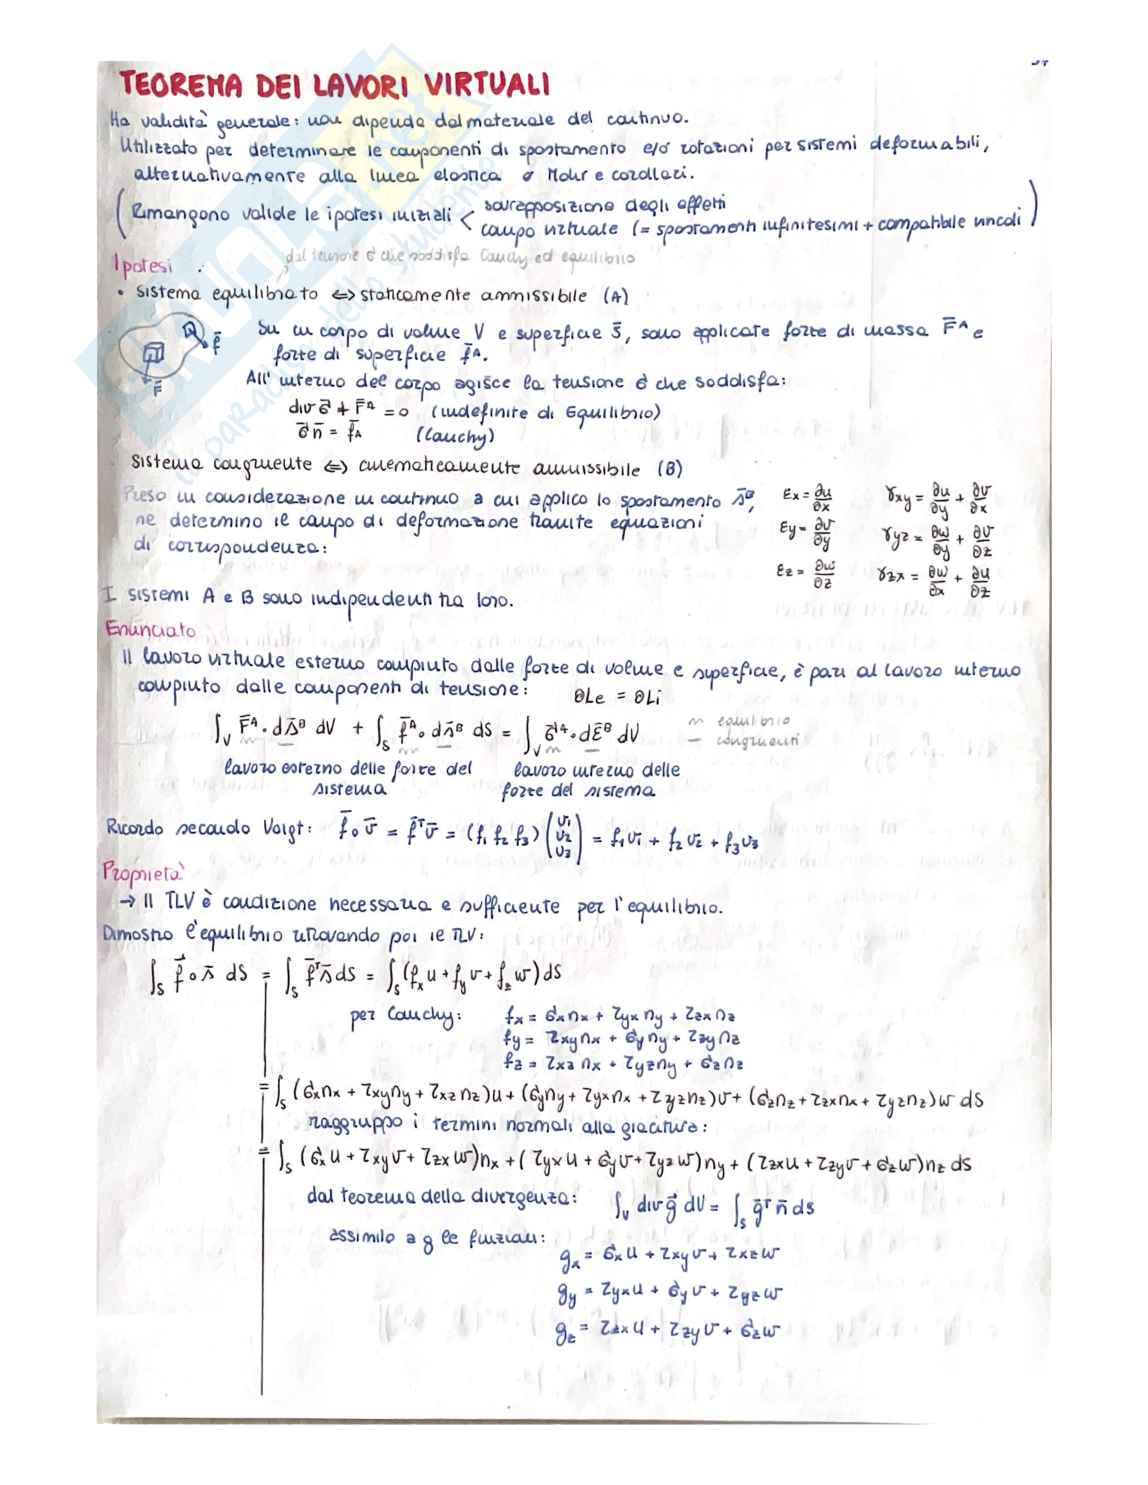 TEOREMA DEI LAVORI VIRTUALI
Ha validità generale: non dipende dal materiale del continuo.
Utilizzato per determinare le componenti di spostamento e/o rotazioni per sistemi deformabili,
alternativamente alla linea elastica o Mohr e corollari.
(Rimangono valide le ipotesi iniziali < sovrapposizione degli effetti
campo virtuale (= spostamenti infinitesimi + compatibile vincoli)
dal tensione σ che soddisfa Cauchy ed equilibrio
Ipotesi
• Sistema equilibrato ⇔ staticamente ammissibile (A)
Su un corpo di volume V e superficie S, sono applicate forze di massa F̄ᴬ e
forze di superficie f̄ᴬ.
All'interno del corpo agisce la tensione σ che soddisfa:
div σ̄ + F̄ᴬ = 0 (indefinite di Equilibrio)
σ̄ n̄ = f̄ᴬ (Cauchy)
Sistema congruente ⇔ cinematicamente ammissibile (B)
Preso in considerazione un continuo a cui applico lo spostamento s̄ᴮ,
ne determino il campo di deformazione tramite equazioni
di corrispondenza:
εx = ∂u/∂x γxy = ∂u/∂y + ∂v/∂x
εy = ∂v/∂y γyz = ∂w/∂y + ∂v/∂z
εz = ∂w/∂z γzx = ∂w/∂x + ∂u/∂z
I sistemi A e B sono indipendenti tra loro.
Enunciato
Il lavoro virtuale esterno compiuto dalle forze di volume e superficie, è pari al lavoro interno
compiuto dalle componenti di tensione: ∂Le = ∂Li
∫V F̄ᴬ · ds̄ᴮ dV + ∫S f̄ᴬ ∘ ds̄ᴮ dS = ∫V σ̄ᴬ · dε̄ᴮ dV
~ equilibrio
— congruenti
lavoro esterno delle forze del sistema
lavoro interno delle forze del sistema
Ricordo secondo Voigt: f̄ ∘ v̄ = f̄ᵀv̄ = (f1 f2 f3) (v1 v2 v3) = f1v1 + f2v2 + f3v3
Proprietà
→ Il TLV è condizione necessaria e sufficiente per l'equilibrio.
Dimostro l'equilibrio ritrovando poi il TLV:
∫S f̄ ∘ s̄ dS = ∫S f̄ᵀs̄ dS = ∫S (fx u + fy v + fz w) dS
per Cauchy: fx = σx nx + τyx ny + τzx nz
fy = τxy nx + σy ny + τzy nz
fz = τxz nx + τyz ny + σz nz
= ∫S (σx nx + τxy ny + τxz nz) u + (σy ny + τyx nx + τyz nz) v + (σz nz + τzx nx + τyz nz) w dS
raggruppo i termini normali alla giacitura:
= ∫S (σx u + τxy v + τzx w) nx + (τyx u + σy v + τyz w) ny + (τzx u + τzy v + σz w) nz dS
dal teorema della divergenza: ∫V div ḡ dV = ∫S ḡᵀ n̄ dS
assimilo a g le funzioni:
gx = σx u + τxy v + τxz w
gy = τyx u + σy v + τyz w
gz = τzx u + τzy v + σz w